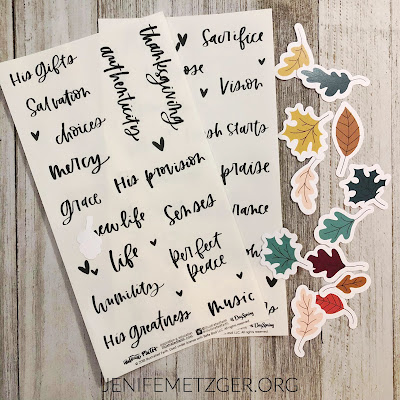 His Gifts
Salvation
choices
mercy
Grace
new life
life
humility
His Greatness
authenticity
thanksgiving
His provision
Senses
Perfect
Peace
music
Sacrifice
ose
Vision
sh starts
praise
rance
DaySpring
DaySpring
JENIFEMETZGER.ORG